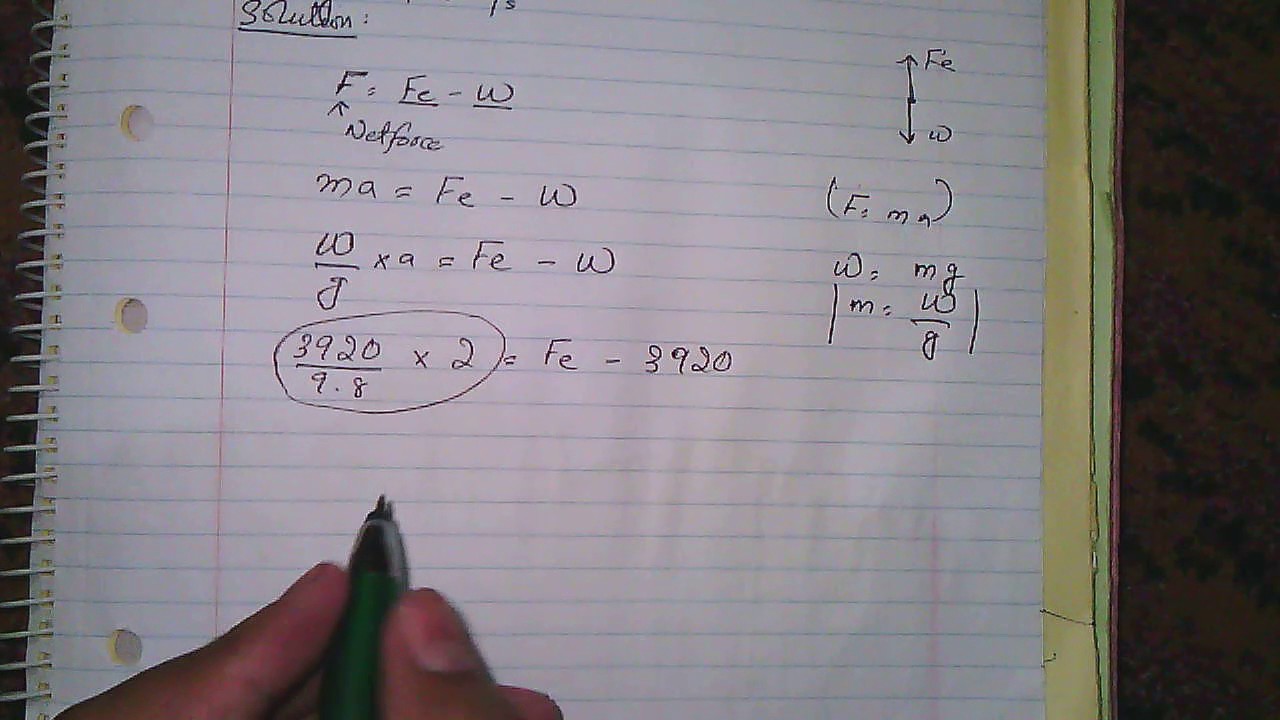 Solution:
F = Fe - W
↑ Net force
ma = Fe - W
W/g × a = Fe - W
3920/9.8 × 2 = Fe - 3920
Fe
W
(F = ma)
W = mg
m = W/g